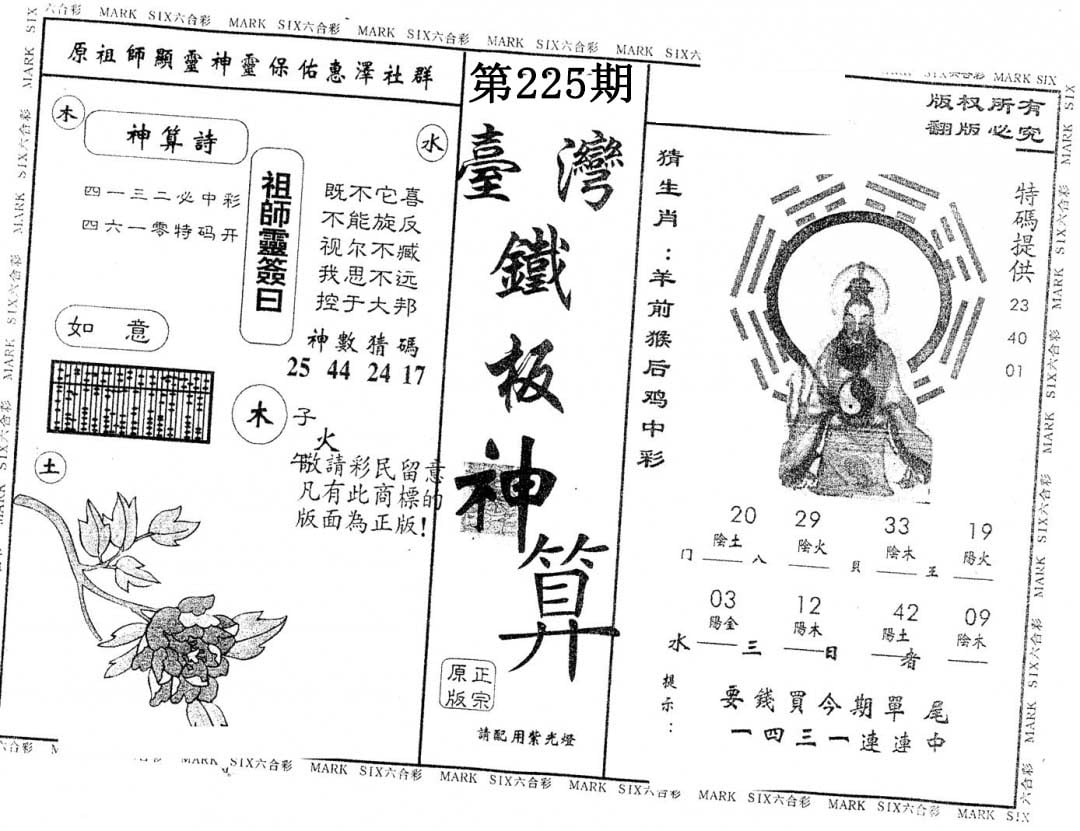 MARK SIX六合彩 MARK SIX六合彩 MARK SIX六合彩 MARK SIX六合彩 MARK SIX六
原祖師顯靈神靈保佑惠澤社群
木
神算詩
水
四一三二必中彩
四六一零特码开
祖師靈簽曰
既不它喜
不能旋反
视尔不臧
我思不远
控于大邦
神數猜碼
25 44 24 17
如意
木
子
火
午
敬請彩民留意
凡有此商標的
版面為正版!
土
第225期
臺灣
鐵
板
神
算
正宗
原版
請配用紫光燈
版权所有
翻版必究
猜生肖:羊前猴后鸡中彩
特碼提供
23
40
01
20 29 33 19
陰土 陰火 陰木 陽火
门 八 貝 王
03 12 42 09
陽金 陽木 陽土 陰木
水 三 日 者
提示:
要錢買今期單尾
一四三一連連中
MARK SIX六合彩 MARK SIX六合彩 MARK SIX六合彩 MARK SIX六合彩 MARK SIX六合彩 MARK SIX